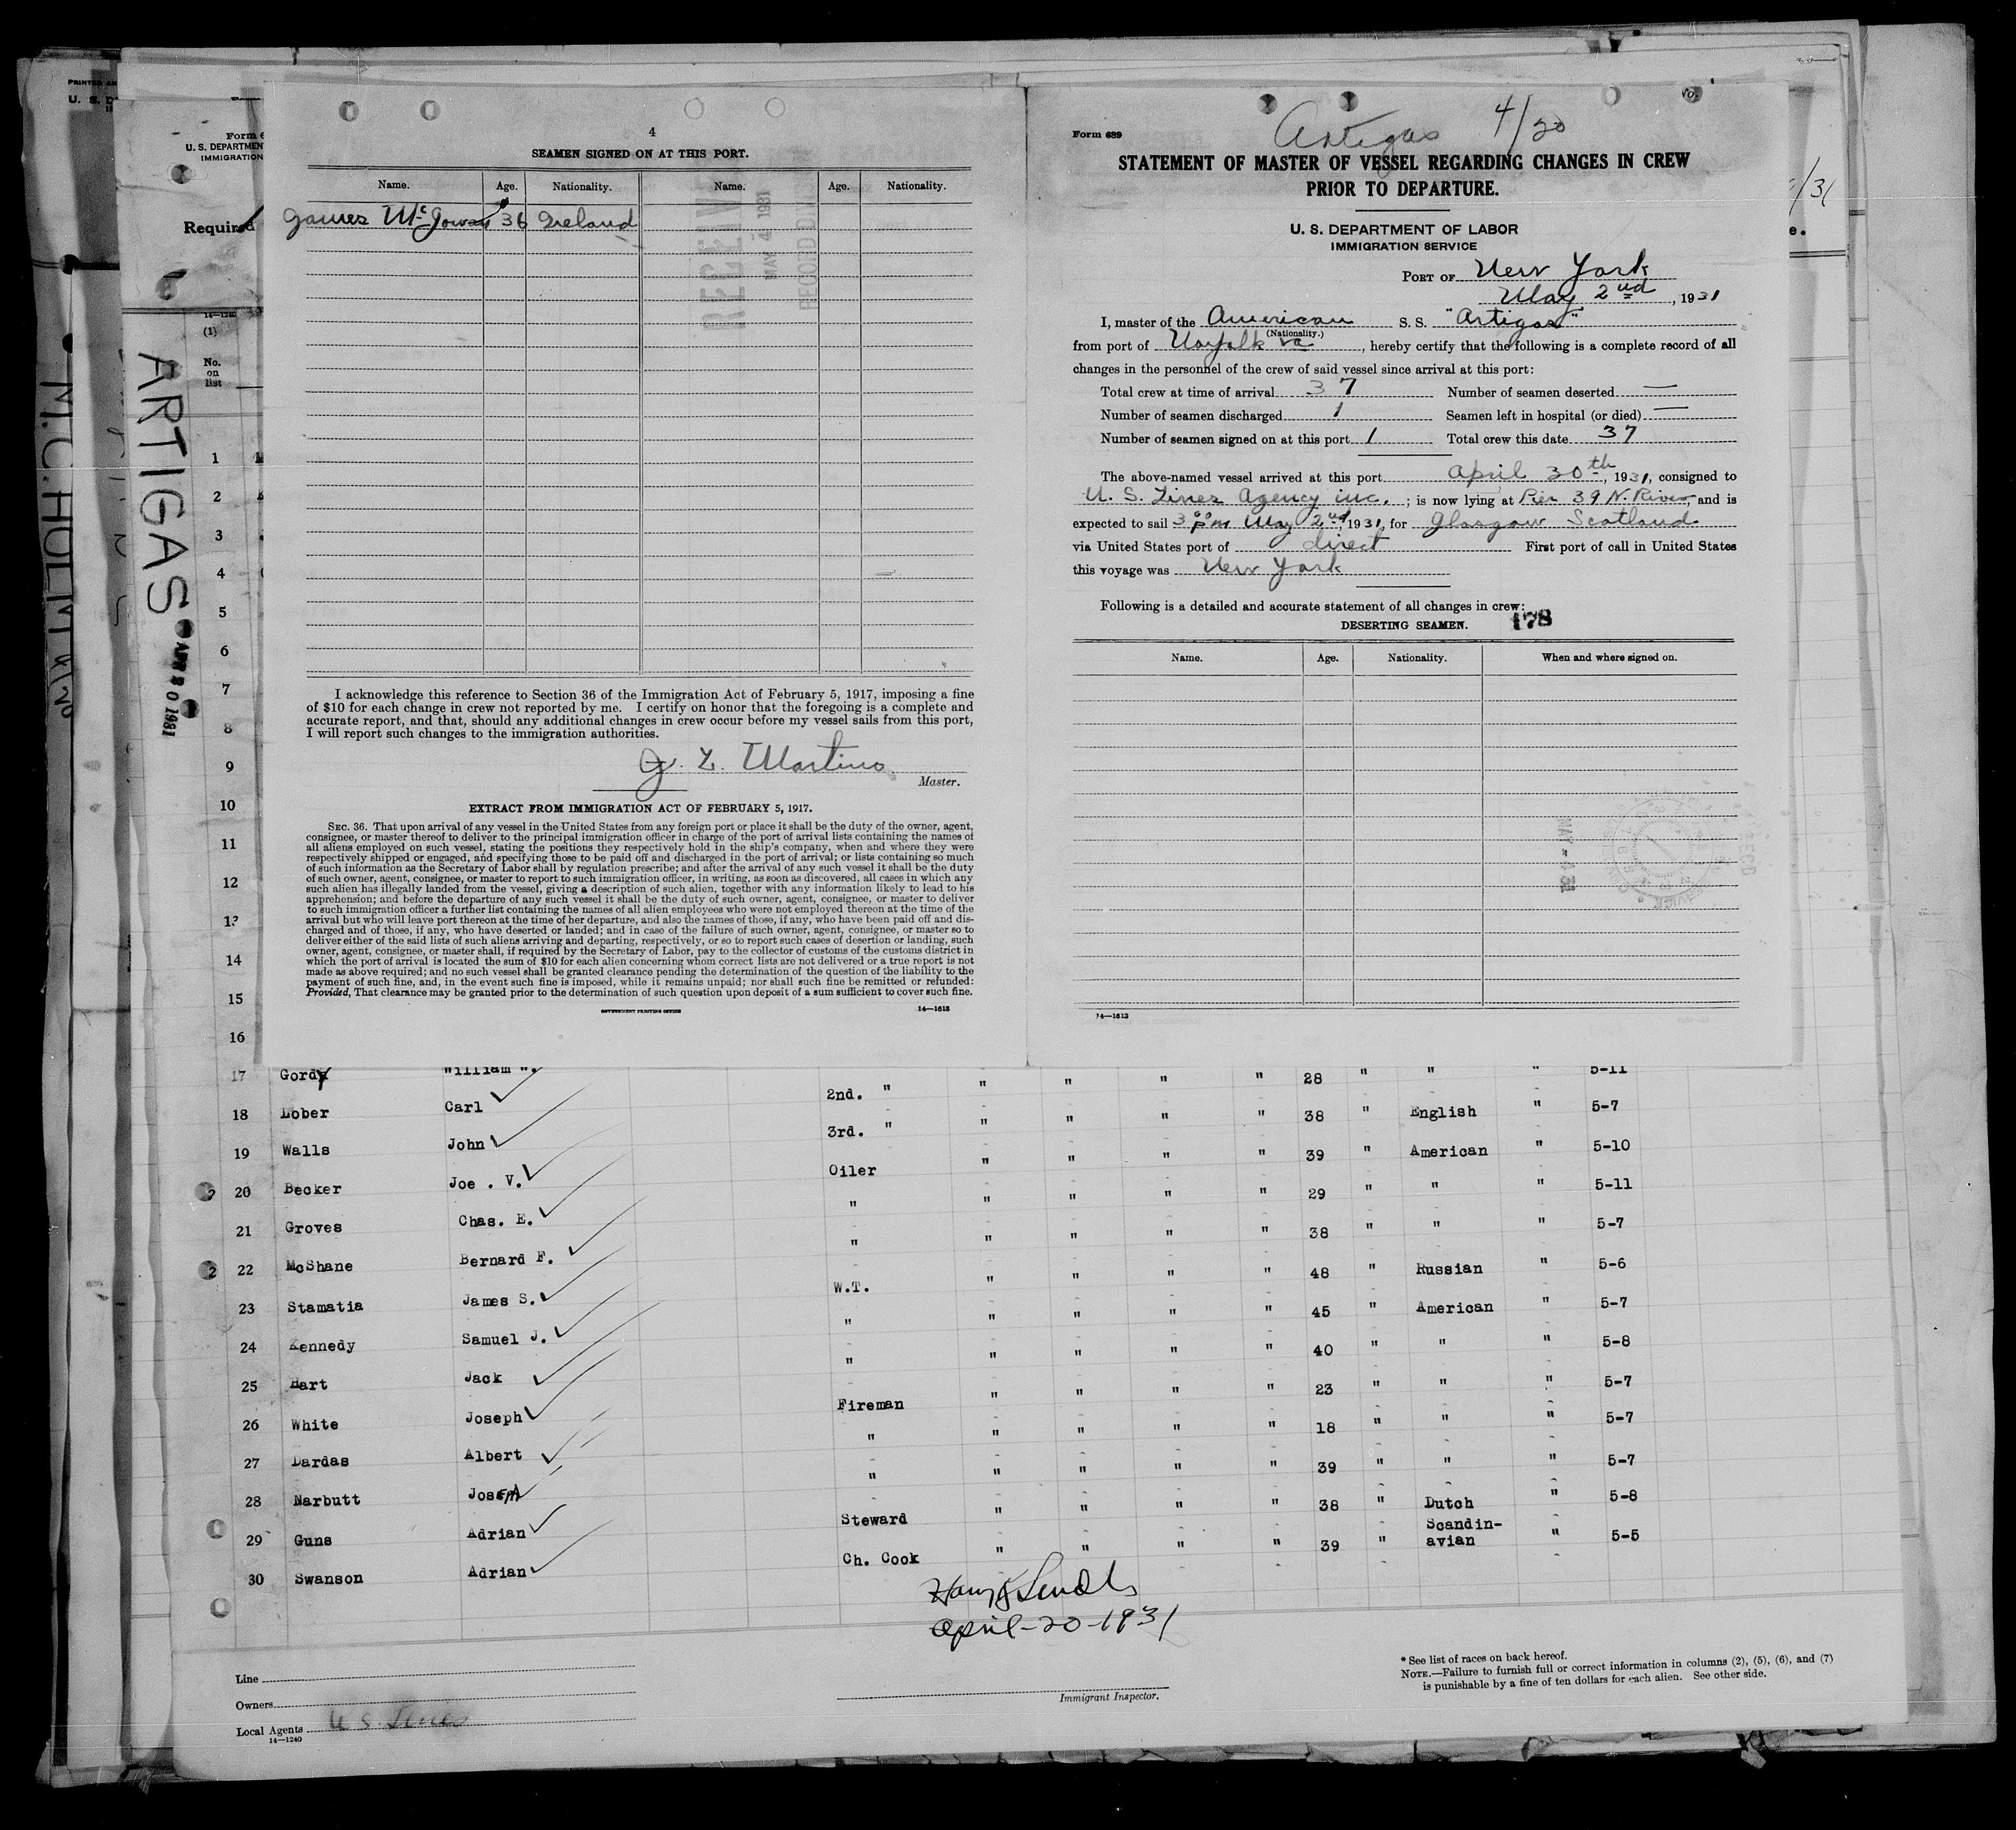 4
SEAMEN SIGNED ON AT THIS PORT.
Name. Age. Nationality. Name. Age. Nationality.
James McGowan 36 Ireland
RECEIVED
MAY 4 1931
RECORD DIVISION
I acknowledge this reference to Section 36 of the Immigration Act of February 5, 1917, imposing a fine
of $10 for each change in crew not reported by me. I certify on honor that the foregoing is a complete and
accurate report, and that, should any additional changes in crew occur before my vessel sails from this port,
I will report such changes to the immigration authorities.
Martino
Master.
EXTRACT FROM IMMIGRATION ACT OF FEBRUARY 5, 1917.
SEC. 36. That upon arrival of any vessel in the United States from any foreign port or place it shall be the duty of the owner, agent,
consignee, or master thereof to deliver to the principal immigration officer in charge of the port of arrival lists containing the names of
all aliens employed on such vessel, stating the positions they respectively hold in the ship's company, when and where they were
respectively shipped or engaged, and specifying those to be paid off and discharged in the port of arrival; or lists containing so much
of such information as the Secretary of Labor shall by regulation prescribe; and after the arrival of any such vessel it shall be the duty
of such owner, agent, consignee, or master to report to such immigration officer, in writing, as soon as discovered, all cases in which any
such alien has illegally landed from the vessel, giving a description of such alien, together with any information likely to lead to his
apprehension; and before the departure of any such vessel it shall be the duty of such owner, agent, consignee, or master to deliver
to such immigration officer a further list containing the names of all alien employees who were not employed thereon at the time of the
arrival but who will leave port thereon at the time of her departure, and also the names of those, if any, who have been paid off and dis-
charged and of those, if any, who have deserted or landed; and in case of the failure of such owner, agent, consignee, or master so to
deliver either of the said lists of such aliens arriving and departing, respectively, or so to report such cases of desertion or landing, such
owner, agent, consignee, or master shall, if required by the Secretary of Labor, pay to the collector of customs of the customs district in
which the port of arrival is located the sum of $10 for each alien concerning whom correct lists are not delivered or a true report is not
made as above required; and no such vessel shall be granted clearance pending the determination of the question of the liability to the
payment of such fine, and, in the event such fine is imposed, while it remains unpaid; nor shall such fine be remitted or refunded:
Provided, That clearance may be granted prior to the determination of such question upon deposit of a sum sufficient to cover such fine.
GOVERNMENT PRINTING OFFICE 14—1613
Artigas 4/20
Form 689
STATEMENT OF MASTER OF VESSEL REGARDING CHANGES IN CREW
PRIOR TO DEPARTURE.
U. S. DEPARTMENT OF LABOR
IMMIGRATION SERVICE
PORT OF New York
May 2nd, 1931
I, master of the American S. S. "Artigas"
(Nationality.)
from port of Norfolk Va, hereby certify that the following is a complete record of all
changes in the personnel of the crew of said vessel since arrival at this port:
Total crew at time of arrival 37 Number of seamen deserted —
Number of seamen discharged 1 Seamen left in hospital (or died) —
Number of seamen signed on at this port 1 Total crew this date 37
The above-named vessel arrived at this port April 30th, 1931, consigned to
U. S. Lines Agency inc.; is now lying at Pier 39 N. River, and is
expected to sail 3 00 pm May 2nd, 1931, for Glasgow Scotland
via United States port of direct First port of call in United States
this voyage was New York
Following is a detailed and accurate statement of all changes in crew:
DESERTING SEAMEN. 178
Name. Age. Nationality. When and where signed on.
MAY - 4 31
14—1613
U. S. D
Form 6
U. S. DEPARTMEN
IMMIGRATION
Required
14—1240
(1)
No.
on
list
ARTIGAS
APR 20 1931
1
2
3
4
5
6
7
8
9
10
11
12
13
14
15
16
17 Gordy William W. 2nd. " " " " " 28 " " " 5-11
18 Lober Carl 3rd. " " " " " 38 " English " 5-7
19 Walls John Oiler " " " " 39 " American " 5-10
20 Becker Joe . V. " " " " " 29 " " " 5-11
21 Groves Chas. E. " " " " " 38 " " " 5-7
22 McShane Bernard F. W.T. " " " " 48 " Russian " 5-6
23 Stamatia James S. " " " " " 45 " American " 5-7
24 Kennedy Samuel J. " " " " " 40 " " " 5-8
25 Hart Jack Fireman " " " " 23 " " " 5-7
26 White Joseph " " " " " 18 " " " 5-7
27 Dardas Albert " " " " " 39 " " " 5-7
28 Narbutt Joseph Steward " " " " 38 " Dutch " 5-8
29 Guns Adrian Ch. Cook " " " " 39 " Scandin-
avian " 5-5
30 Swanson Adrian
April-20-1931
Immigrant Inspector.
Line
Owners
Local Agents U S. Lines
14—1240
* See list of races on back hereof.
NOTE.—Failure to furnish full or correct information in columns (2), (5), (6), and (7)
is punishable by a fine of ten dollars for each alien. See other side.